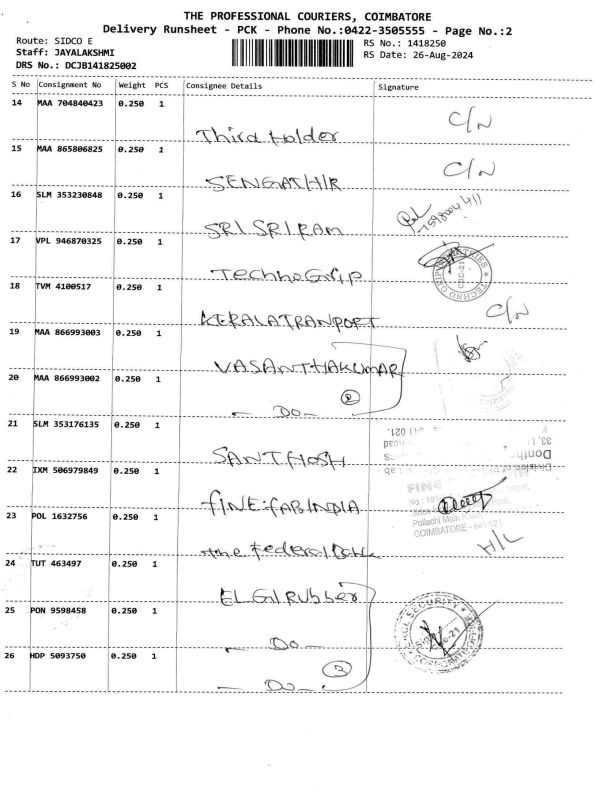 THE PROFESSIONAL COURIERS, COIMBATORE
Delivery Runsheet - PCK - Phone No.:0422-3505555 - Page No.:2
Route: SIDCO E
RS No.: 1418250
Staff: JAYALAKSHMI
RS Date: 26-Aug-2024
DRS No.: DCJB141825002
S No Consignment No Weight PCS Consignee Details Signature
14 MAA 704840423 0.250 1
Third Holder C/N
15 MAA 865806825 0.250 1
SENGATHIR C/N
16 SLM 353230848 0.250 1
SRI SRI RAM
17 VPL 946870325 0.250 1
TechnoGrip
18 TVM 4100517 0.250 1
KERALATRANPORT C/N
19 MAA 866993003 0.250 1
VASANTHAKUMAR
20 MAA 866993002 0.250 1
- Do - 2
21 SLM 353176135 0.250 1
SANTHOSH
22 IXM 506979849 0.250 1
FINE FAB INDIA
FINE
Pollachi Main
COIMBATORE - 641 021
23 POL 1632756 0.250 1
The Federal Bank
24 TUT 463497 0.250 1
ELGI Rubber
25 PON 9598458 0.250 1
- Do -
SECURITY
26 HDP 5093750 0.250 1
- Do - 3